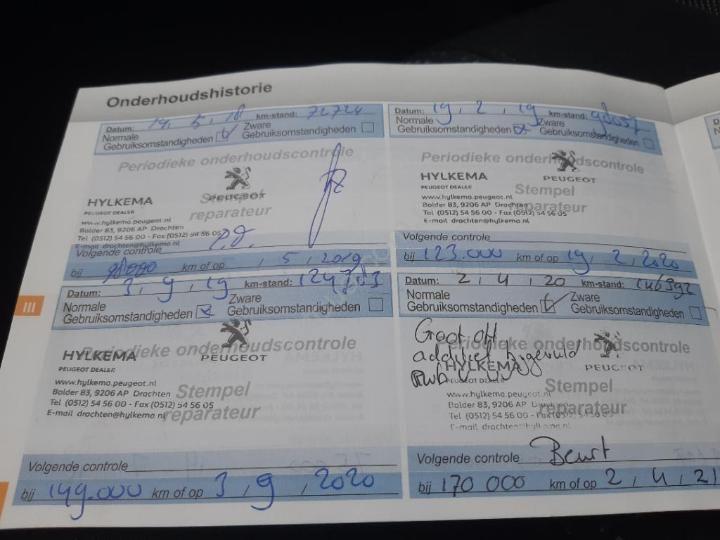 Onderhoudshistorie
Datum: 14, 5, 18 km-stand: 72724
Normale Gebruiksomstandigheden Zware Gebruiksomstandigheden
Periodieke onderhoudscontrole
HYLKEMA PEUGEOT
PEUGEOT DEALER
www.hylkema.peugeot.nl
Bolder 83, 9206 AP Drachten
Tel (0512) 54 56 00 - Fax (0512) 54 56 05
E-mail drachten@hylkema.nl
Stempel
reparateur
Volgende controle
bij km of op , 5, 2019
Datum: 19, 2, 19 km-stand:
Normale Gebruiksomstandigheden Zware Gebruiksomstandigheden
Periodieke onderhoudscontrole
HYLKEMA PEUGEOT
PEUGEOT DEALER
www.hylkema.peugeot.nl
Bolder 83, 9206 AP Drachten
Tel (0512) 54 56 00 - Fax (0512) 54 56 05
E-mail drachten@hylkema.nl
Stempel
reparateur
Volgende controle
bij 123.000 km of op 19, 2, 2020
III
Datum: 3, 9, 19 km-stand:
Normale Gebruiksomstandigheden Zware Gebruiksomstandigheden
Periodieke onderhoudscontrole
HYLKEMA PEUGEOT
PEUGEOT DEALER
www.hylkema.peugeot.nl
Bolder 83, 9206 AP Drachten
Tel (0512) 54 56 00 - Fax (0512) 54 56 05
E-mail drachten@hylkema.nl
Stempel
reparateur
Volgende controle
bij 149.000 km of op 3, 9, 2020
Datum: 2, 4, 20 km-stand:
Normale Gebruiksomstandigheden Zware Gebruiksomstandigheden
Groot off
additief bijgevuld
Periodieke onderhoudscontrole
HYLKEMA PEUGEOT
PEUGEOT DEALER
www.hylkema.peugeot.nl
Bolder 83, 9206 AP Drachten
Tel (0512) 54 56 00 - Fax (0512) 54 56 05
E-mail drachten@hylkema.nl
Stempel
reparateur
Volgende controle Beurt
bij 170 000 km of op 2, 4, 21